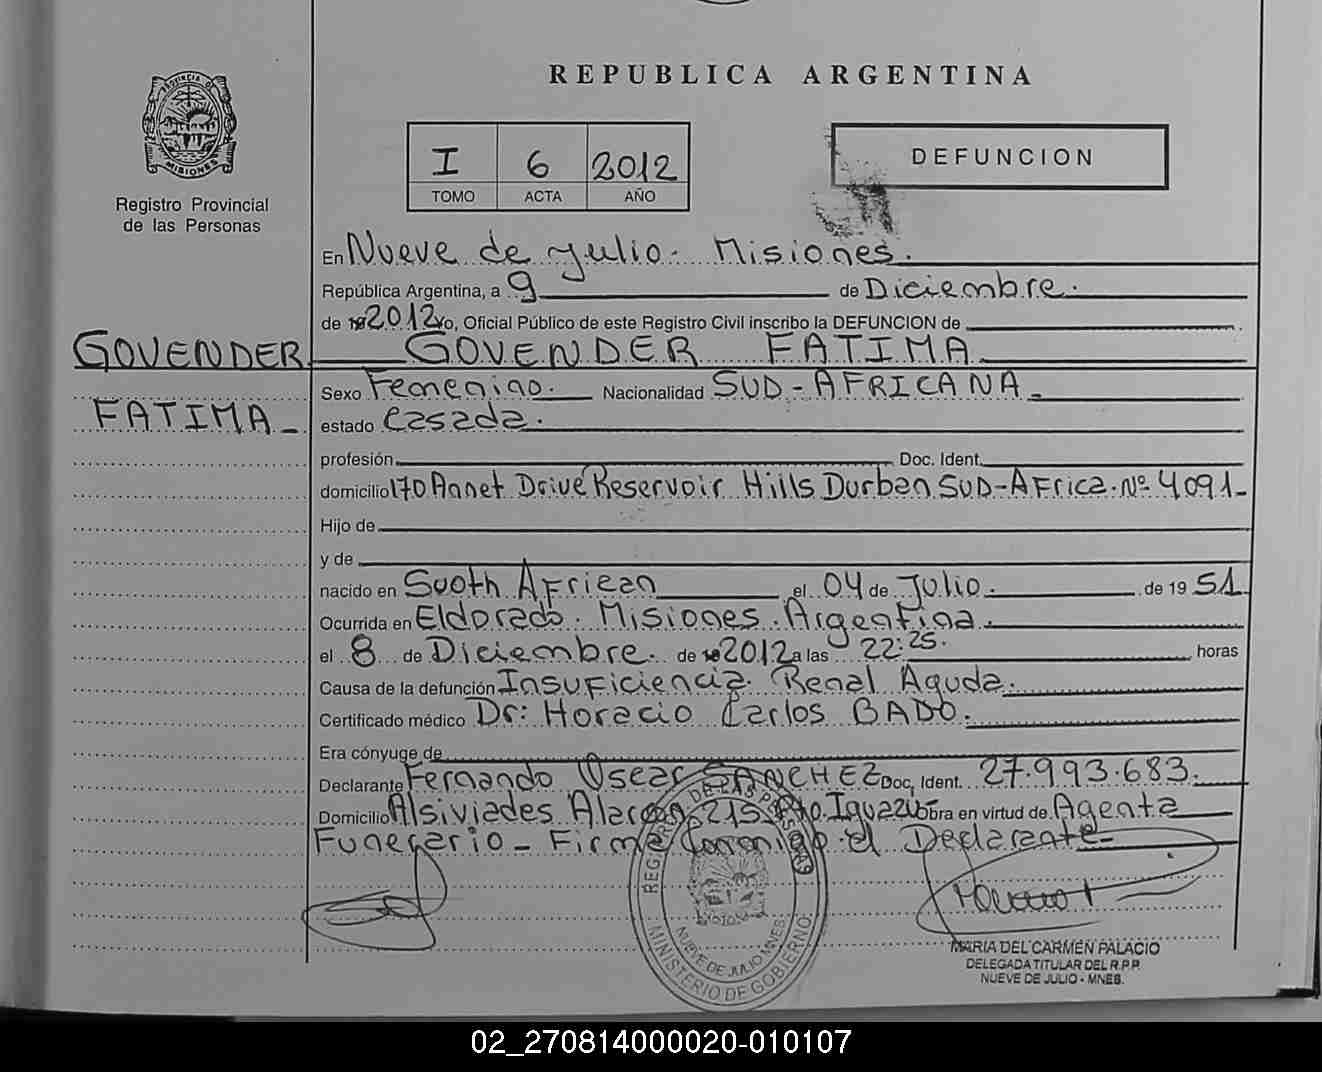 REPUBLICA ARGENTINA
PROVINCIA DE
MISIONES
Registro Provincial
de las Personas
I 6 2012
TOMO ACTA AÑO
DEFUNCION
En Nueve de Julio. Misiones.
República Argentina, a 9 de Diciembre.
de 19 2012 Yo, Oficial Público de este Registro Civil inscribo la DEFUNCION de
GOVENDER GOVENDER FATIMA
Sexo Femenino. Nacionalidad SUD-AFRICANA
FATIMA
estado Casada.
profesión Doc. Ident.
domicilio 170 Annet Drive Reservoir Hills Durban SUD-AFrica. Nº 4091-
Hijo de
y de
nacido en Suoth African el 04 de Julio. de 19 51
Ocurrida en Eldorado. Misiones. Argentina.
el 8 de Diciembre. de 19 2012 a las 22:25. horas
Causa de la defunción InsuFiciencia. Renal Aguda.
Certificado médico Dr: Horacio Carlos BADO.
Era cónyuge de
Declarante Fernando Oscar SANCHEZ Doc. Ident. 27.993.683.
Domicilio Alsiviades Alarcon 215 Pto. Iguazú Obra en virtud de Agente
Funerario - Firma Conmigo el Declarante-
REGISTRO PROV. DE LAS PERSONAS
MISIONES
NUEVE DE JULIO MNES.
MINISTERIO DE GOBIERNO
MARIA DEL CARMEN PALACIO
DELEGADA TITULAR DEL R.P.P.
NUEVE DE JULIO - MNES.
02_270814000020-010107